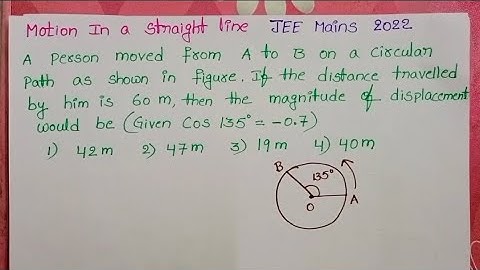 Motion In a straight line JEE Mains 2022
A person moved from A to B on a circular
path as shown in figure. If the distance travelled
by him is 60 m, then the magnitude of displacement
would be (Given Cos 135° = -0.7)
1) 42 m 2) 47 m 3) 19 m 4) 40 m
B 135° A
O